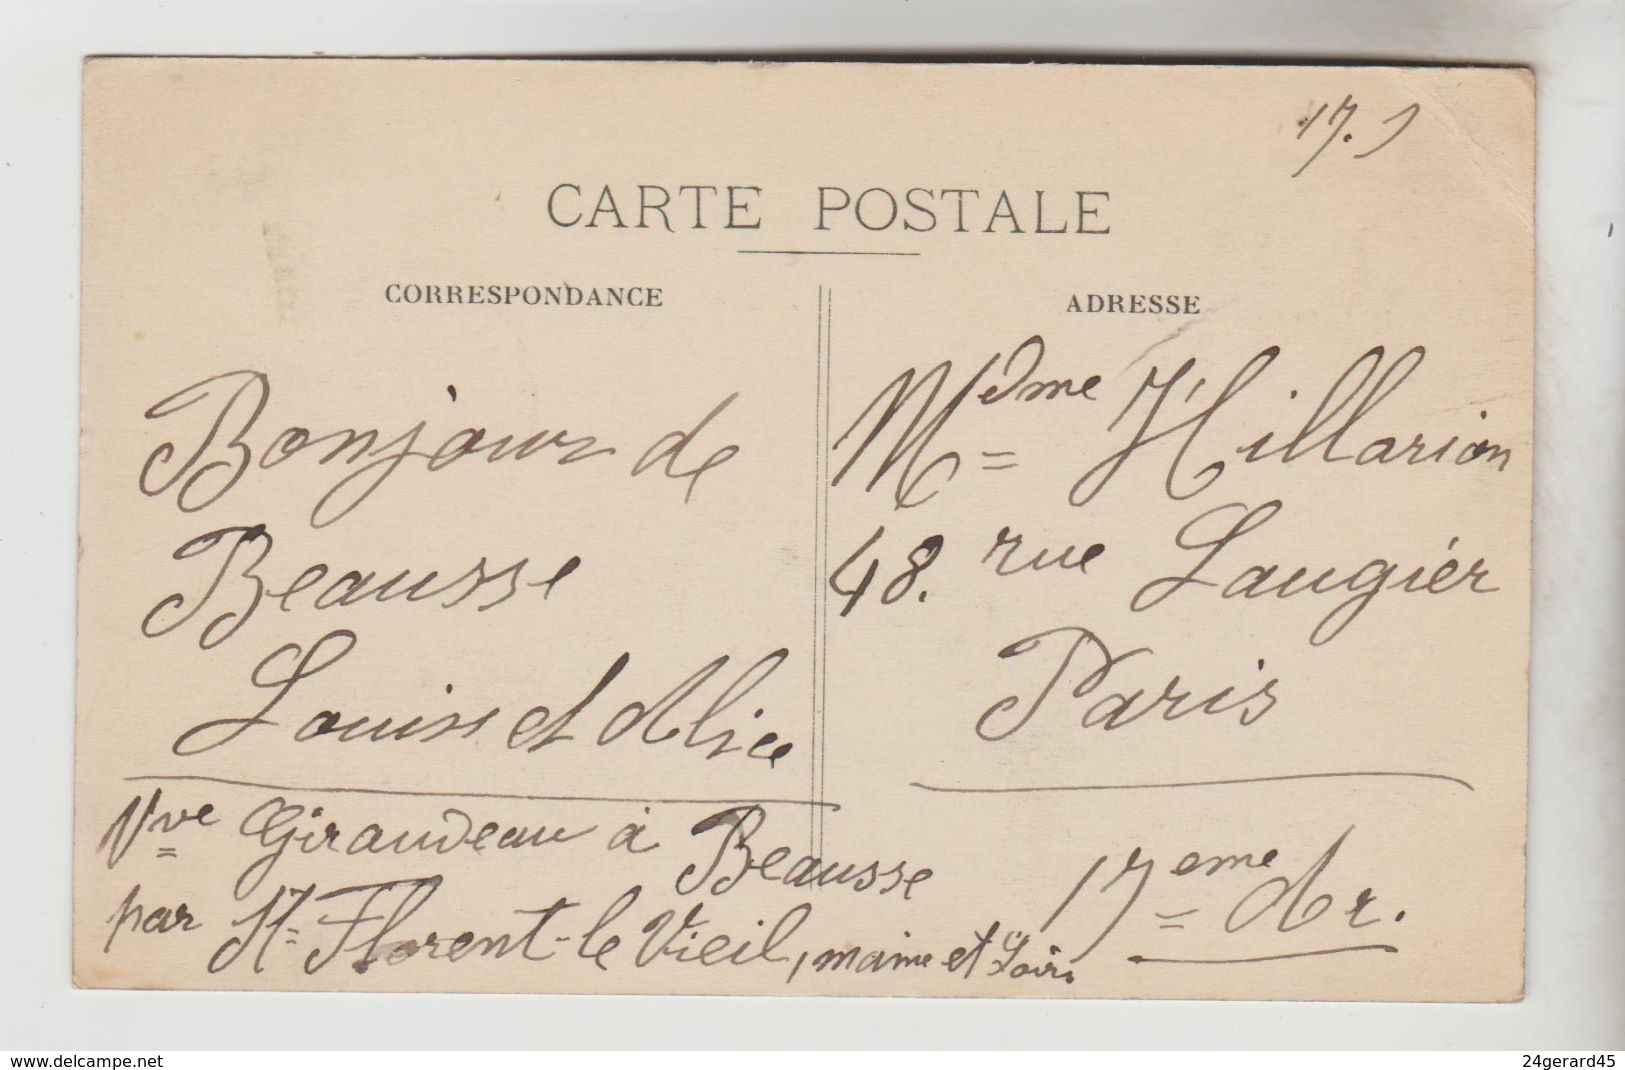 17.9
CARTE POSTALE
CORRESPONDANCE
ADRESSE
Bonjour de
Beausse
Louis et Alice
Vve Giraudeau à Beausse
par St Florent-le Vieil, maine et Loire
Mdme Hillarion
48. rue Laugier
Paris
17eme Ar.
www.delcampe.net
24gerard45